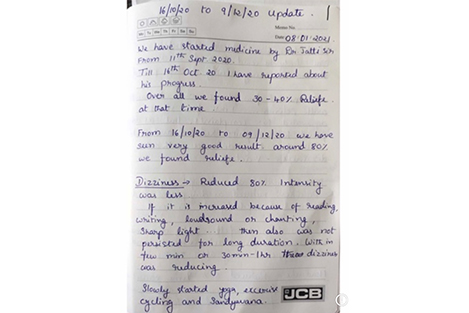 16/10/20 to 9/12/20 update.
1
Mo Tu We Th Fr Sa Su
Memo No.
Date 08/01/2021
We have started medicine by Dr Jatti Sir
From 11th Sept 2020.
Till 16th Oct 20 I have reported about
his progress.
Over all we found 30-40% Relife
at that time.
From 16/10/20 to 09/12/20 we have
seen very good result around 80%
we found relife.
Dizziness → Reduced 80% Intensity
was less
If it is increased because of reading,
writing, loudsound or chanting,
sharp light. then also was not
persisted for long duration. With in
few min or 30min-1hr dizziness
was reducing.
Slowly started yoga, excercise
cycling and
JCB